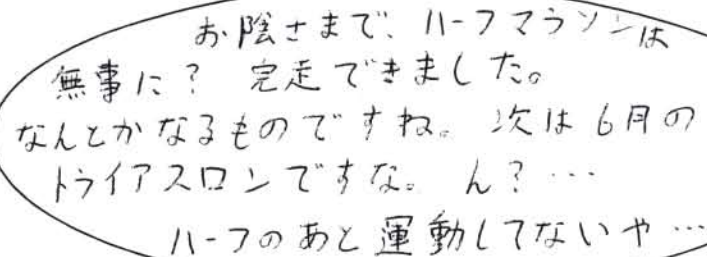 お陰さまで、ハーフマラソンは
無事に? 完走できました。
なんとかなるものですね。次は6月の
トライアスロンですな。ん?…
ハーフのあと運動してないや…